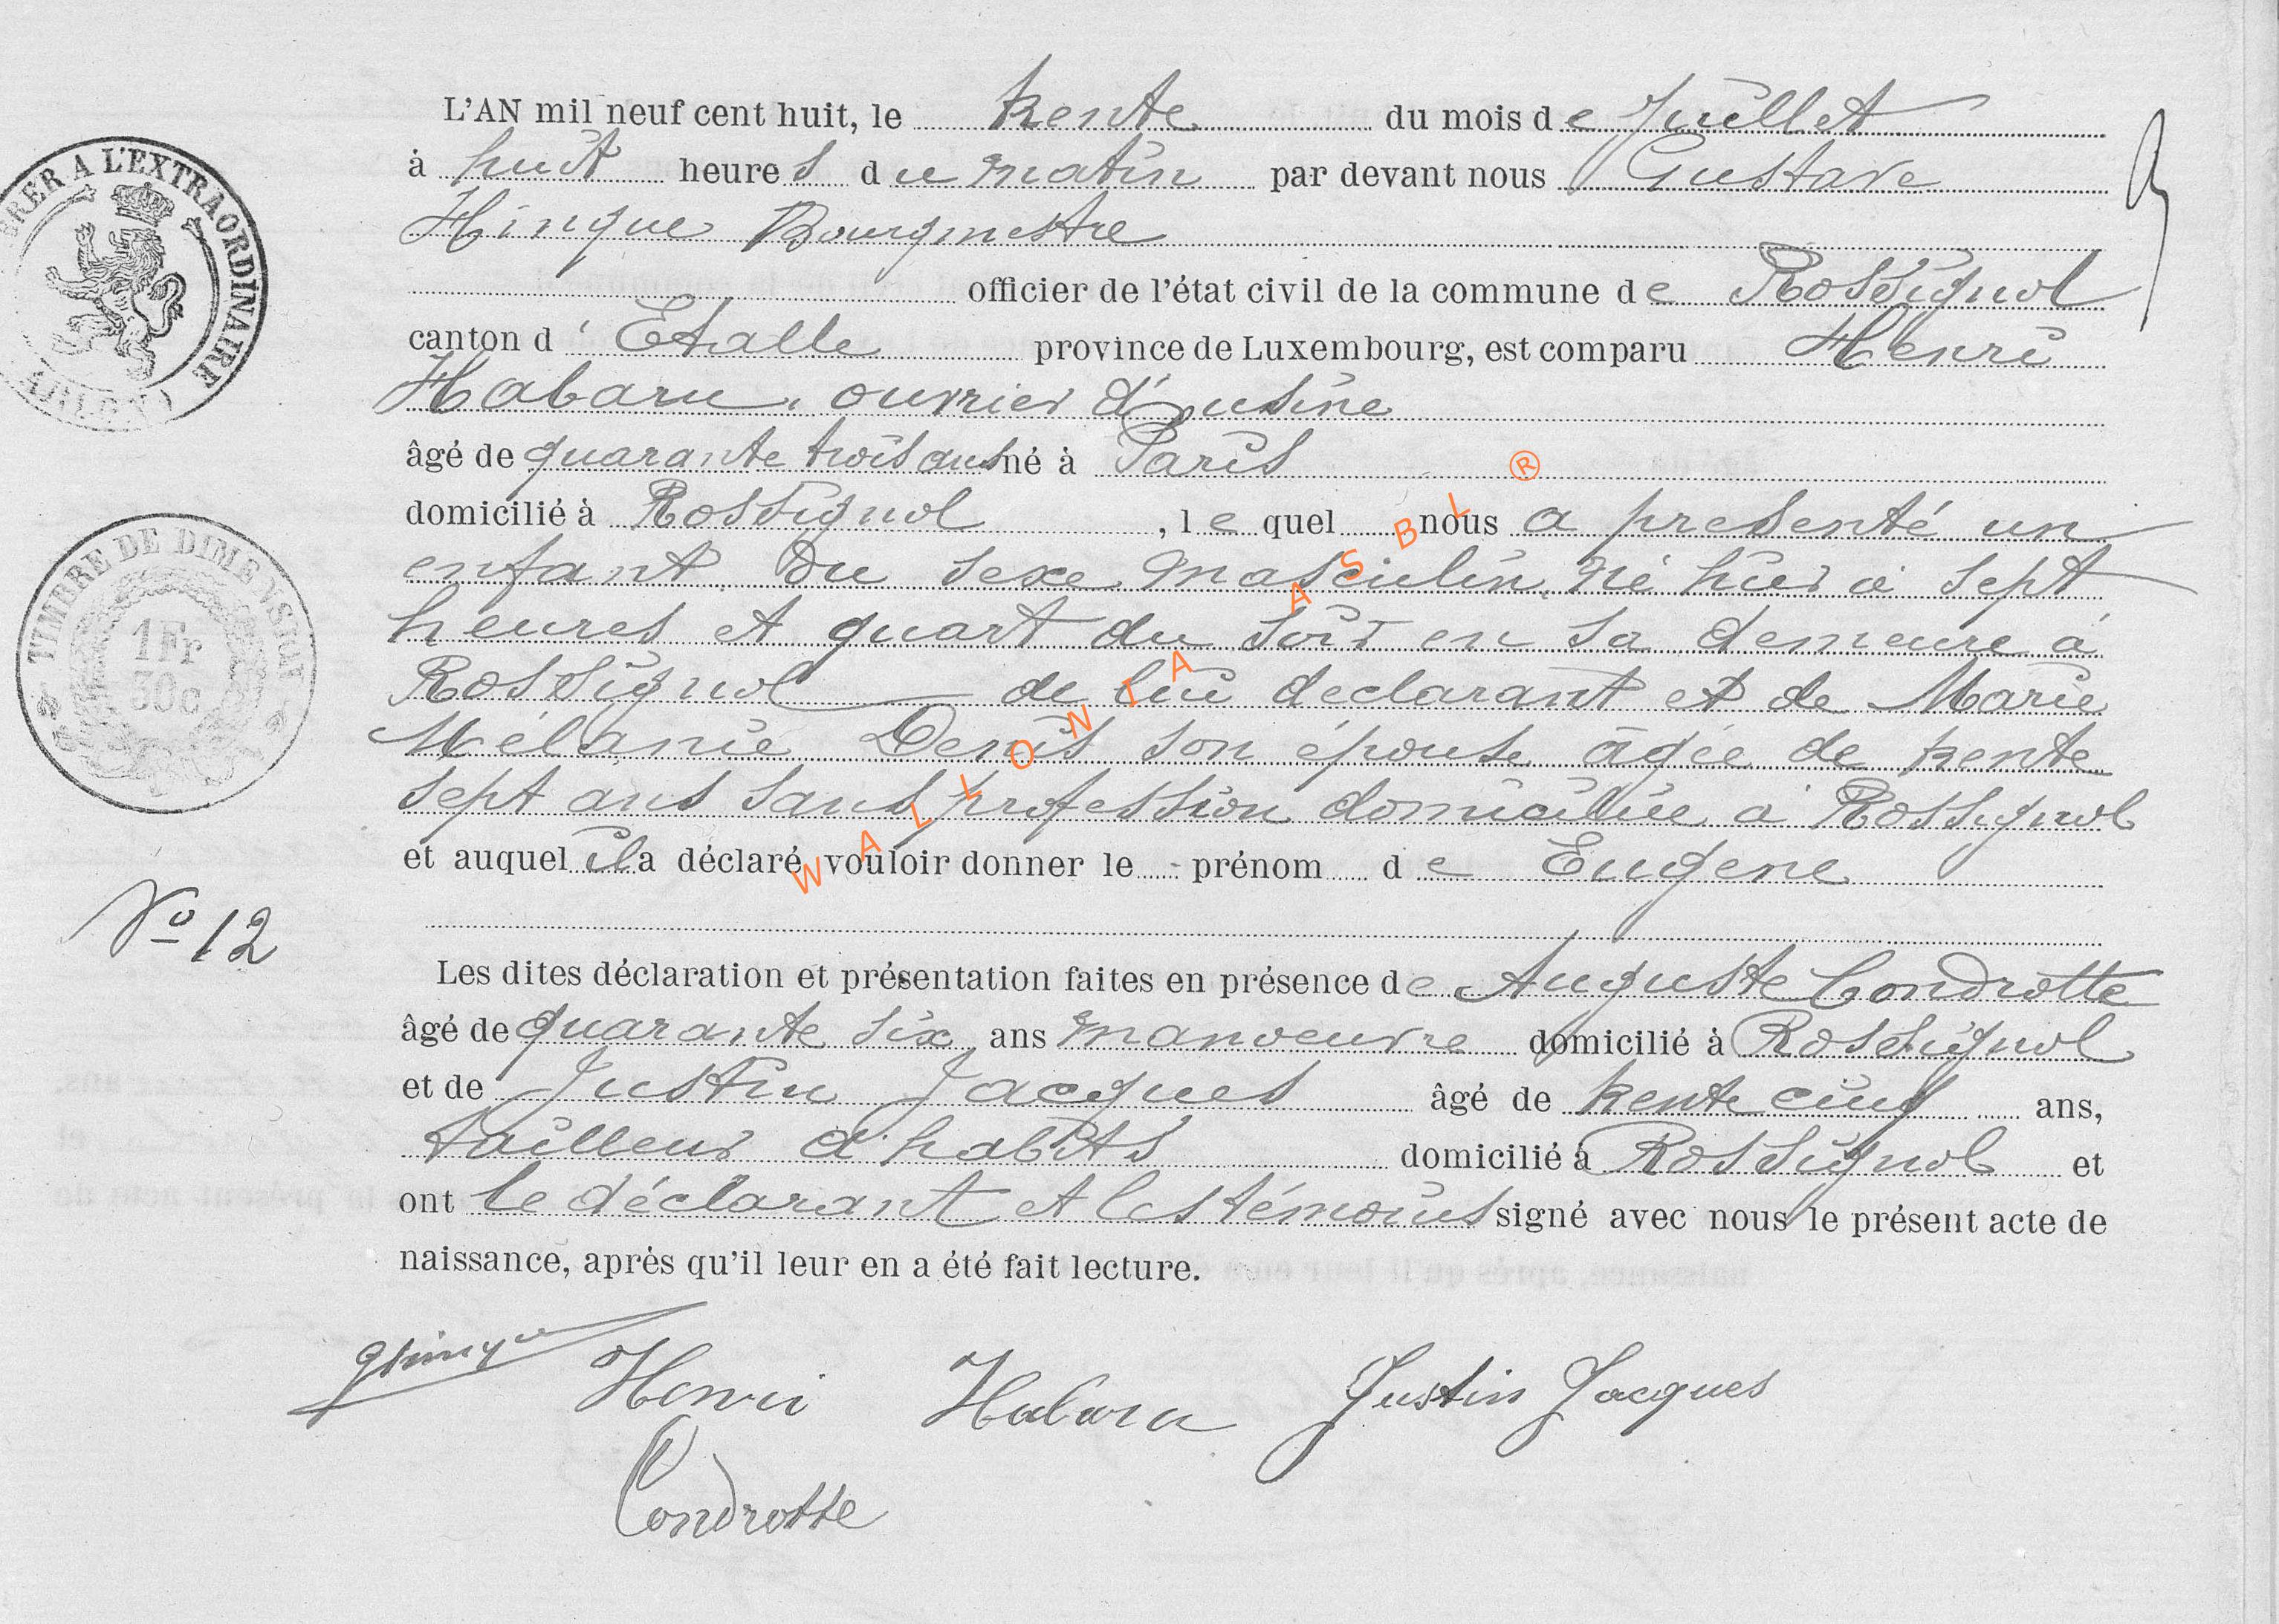 L'AN mil neuf cent huit, le trente du mois de Juillet
à huit heures du matin par devant nous Gustave
Hinque Bourgmestre
officier de l'état civil de la commune de Rossignol
canton d'Etalle province de Luxembourg, est comparu Henri
Habaru, ouvrier d'usine
âgé de quarante trois ans né à Paris
domicilié à Rossignol, lequel nous a presenté un
enfant du sexe masculin, né hier à sept
heures et quart du soir en sa demeure à
Rossignol de lui declarant et de Marie
Mélanie Denis son épouse âgée de trente
sept ans sans profession domiciliée à Rossignol
et auquel il a déclaré vouloir donner le - prénom de Eugene
Les dites déclaration et présentation faites en présence de Auguste Condrotte
âgé de quarante six ans manoeuvre domicilié à Rossignol
et de Justin Jacques âgé de trente cinq ans,
tailleur d'habits domicilié à Rossignol et
ont le déclarant et les témoins signé avec nous le présent acte de
naissance, après qu'il leur en a été fait lecture.
Henri Habaru Justin Jacques
Condrotte
No 12
TIMBRE DE DIMENSION
1 Fr
30 c
A L'EXTRAORDINAIRE
WALLONIA ASBL ®